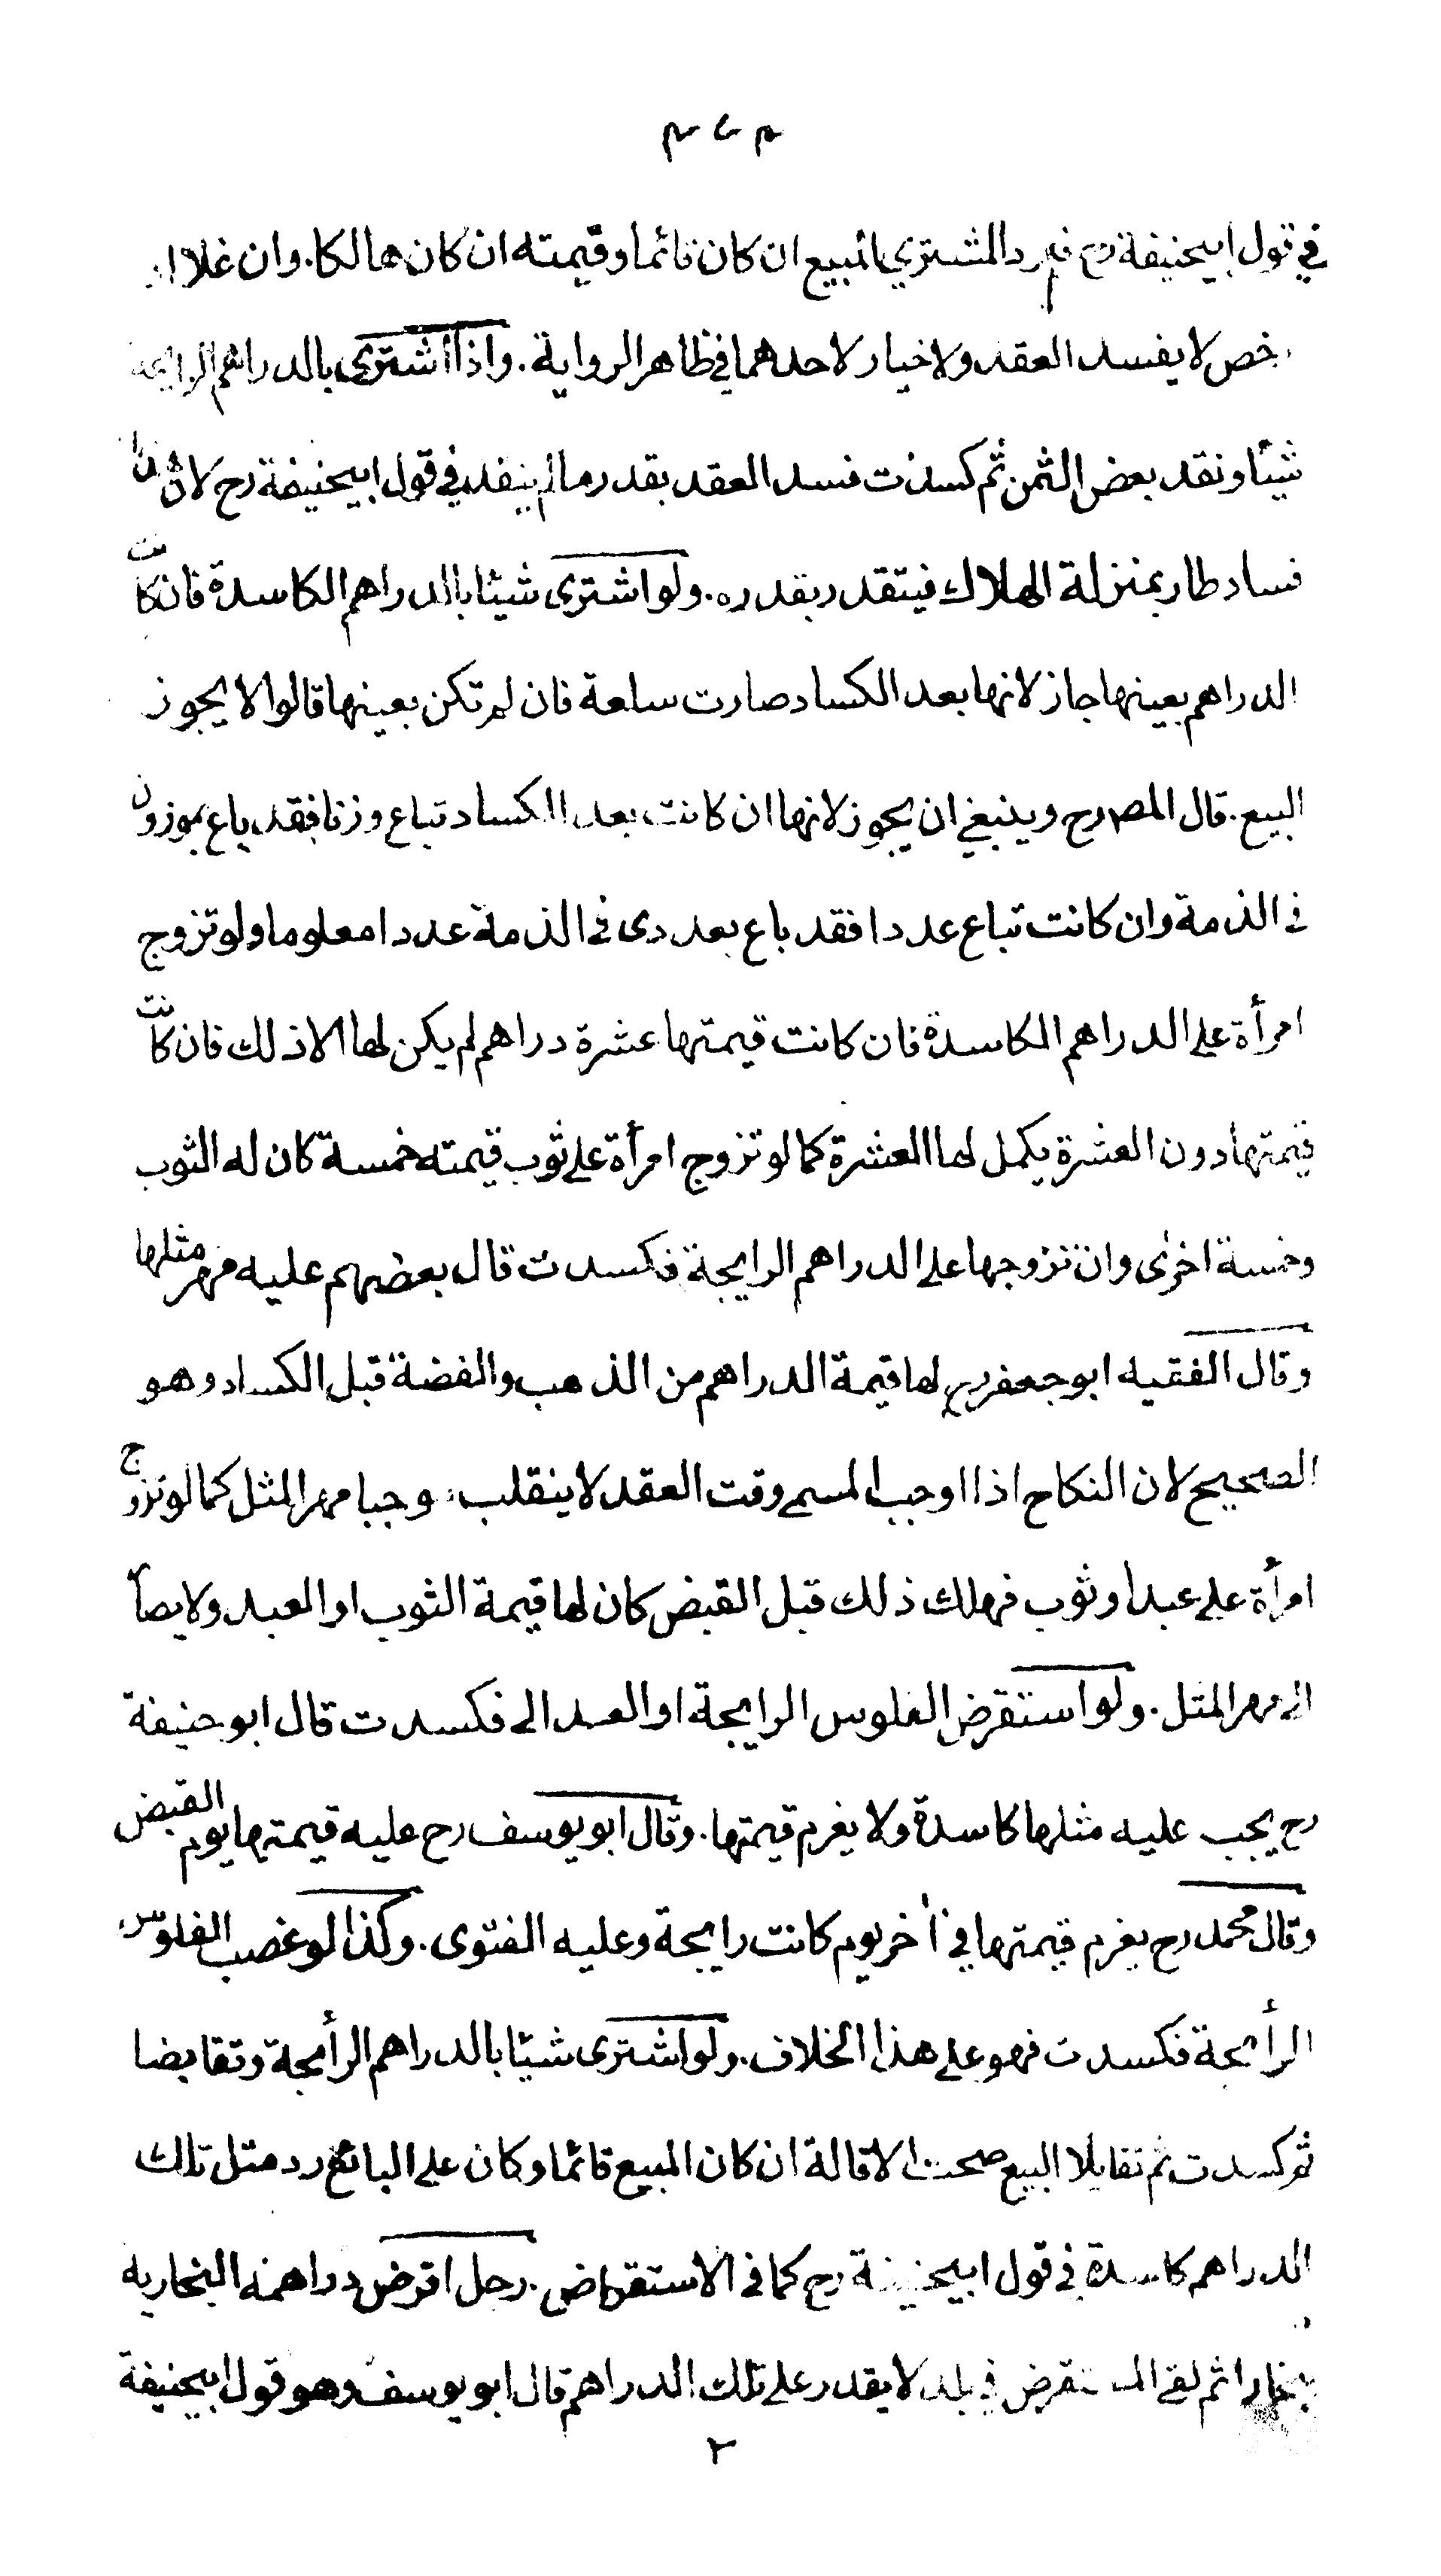 في قول ابيحنيفة رح فيرد المشتري المبيع ان كان قائما وقيمته ان كان هالكا. وان غلا او
رخص لا يفسد العقد ولا خيار لاحدهما في ظاهر الرواية. واذا اشترى بالدراهم الرايجة
شيئا ونقد بعض الثمن ثم كسدت فسد العقد بقدر ما لم ينقد في قول ابيحنيفة رح لان
فساد طار بمنزلة الهلاك فيتقدر بقدره. ولو اشترى شيئا بالدراهم الكاسدة فان كانت
الدراهم بعينها جاز لانها بعد الكساد صارت سلعة فان لم تكن بعينها قالوا لا يجوز
البيع. قال المص رح وينبغي ان يجوز لانها ان كانت بعد الكساد تباع وزنا فقد باع بموزون
في الذمة وان كانت تباع عددا فقد باع بعددى في الذمة عددا معلوما ولو تزوج
امرأة على الدراهم الكاسدة فان كانت قيمتها عشرة دراهم لم يكن لها الا ذلك فان كانت
قيمتها دون العشرة يكمل لها العشرة كما لو تزوج امرأة على ثوب قيمته خمسة كان له الثوب
وخمسة اخرى وان تزوجها على الدراهم الرايجة فكسدت قال بعضهم عليه مهر مثلها
وقال الفقيه ابو جعفر رح لها قيمة الدراهم من الذهب والفضة قبل الكساد وهو
الصحيح لان النكاح اذا اوجب المسمى وقت العقد لا ينقلب موجبا مهر المثل كما لو تزوج
امرأة على عبد او ثوب فهلك ذلك قبل القبض كان لها قيمة الثوب او العبد ولا يصار
الى مهر المثل. ولو استقرض الفلوس الرايجة او العدالى فكسدت قال ابو حنيفة
رح يجب عليه مثلها كاسدة ولا يغرم قيمتها. وقال ابو يوسف رح عليه قيمتها يوم القبض
وقال محمد رح يغرم قيمتها في أخر يوم كانت رايجة وعليه الفتوى. وكذا لو غصب الفلوس
الرائجة فكسدت فهو على هذا الخلاف. ولو اشترى شيئا بالدراهم الرائجة وتقابضا
ثم كسدت ثم تقايلا البيع صحت الاقالة ان كان المبيع قائما وكان على البائع رد مثل تلك
الدراهم كاسدة في قول ابيحنيفة رح كما في الاستقراض. رجل اقرض دراهمه البخاريه
بخارا ثم لقي المستقرض في بلد لا يقدر على تلك الدراهم قال ابو يوسف وهو قول ابيحنيفة
٢